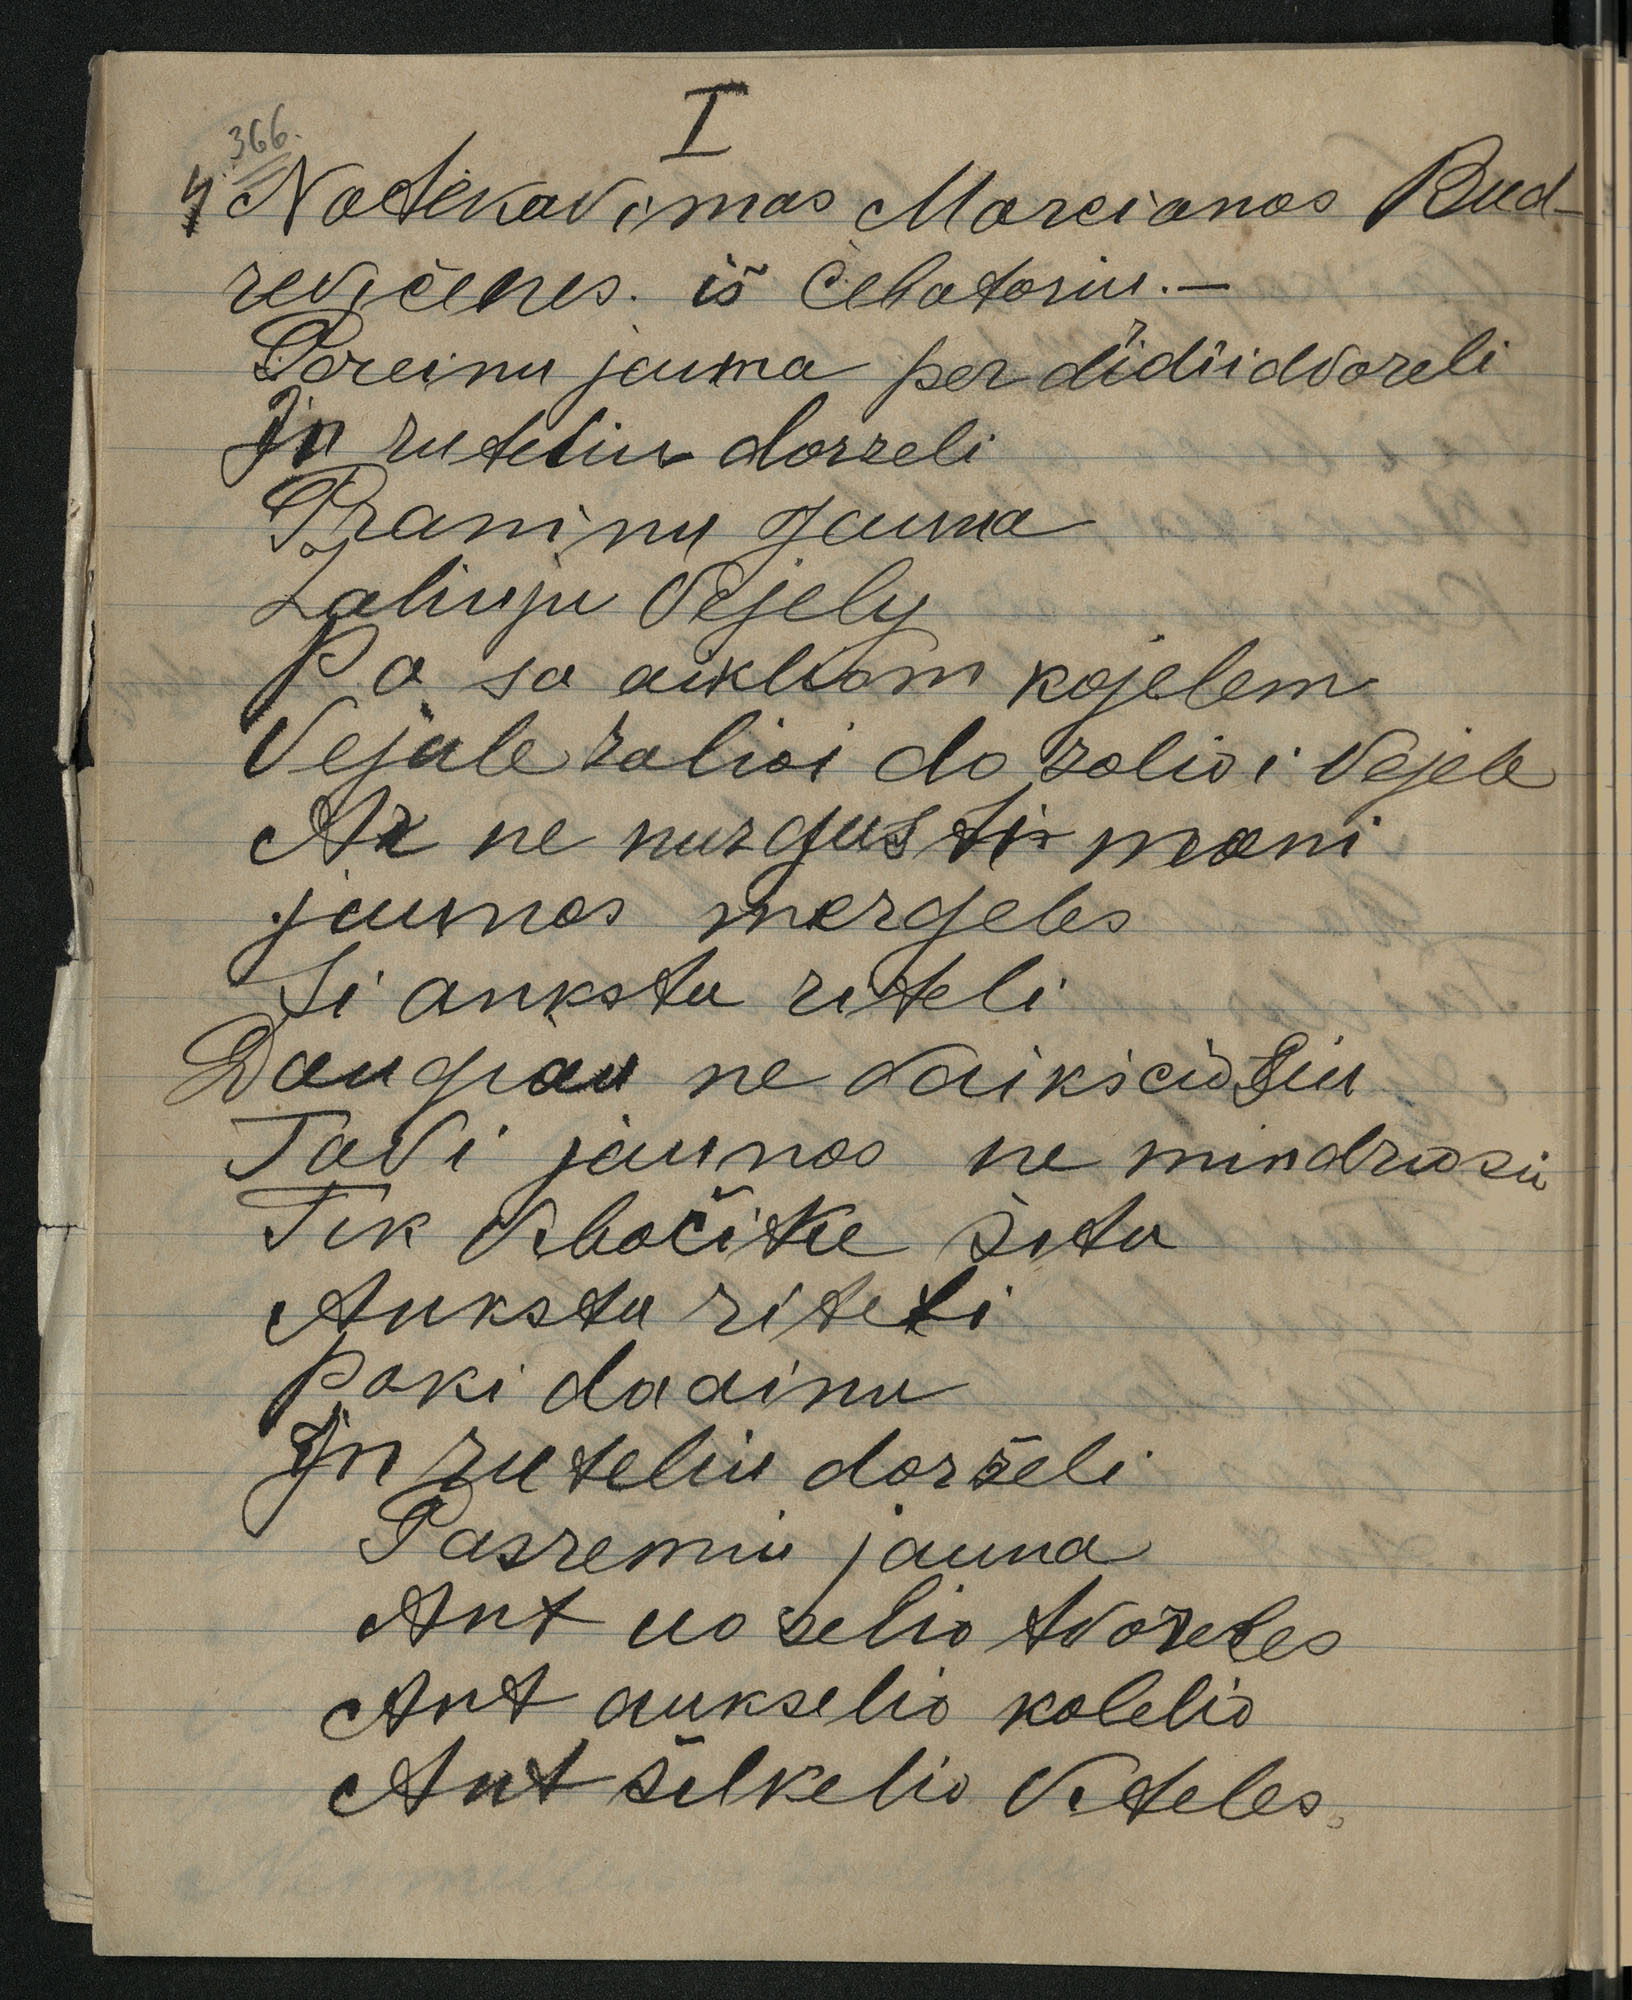 I
366.
4 Notėkavimas Marcianos Bud-
revičenes. iš Čebatoriu.-
Pereinu jauna per didii dvoreli
In ruteliu dorzeli
Praminu Jauna
Zaliuju Vejely
Po sa aikliom kojelem
Vejale zalioi do zolioi Vejele
Ar ne nurgusti mani
jaunos mergeles
Si ankstu riteli
Daugiau ne vaiksciosiu
Tavi jaunos ne mindziosiu
Tik Vbočitke šitu
Ankstu riteli
Paki daainu
In ruteliu dorželi
Pasremiu jauna
Ant uoselio tvoreles
Ant aukselio kolelio
Ant šilkelio Viteles.